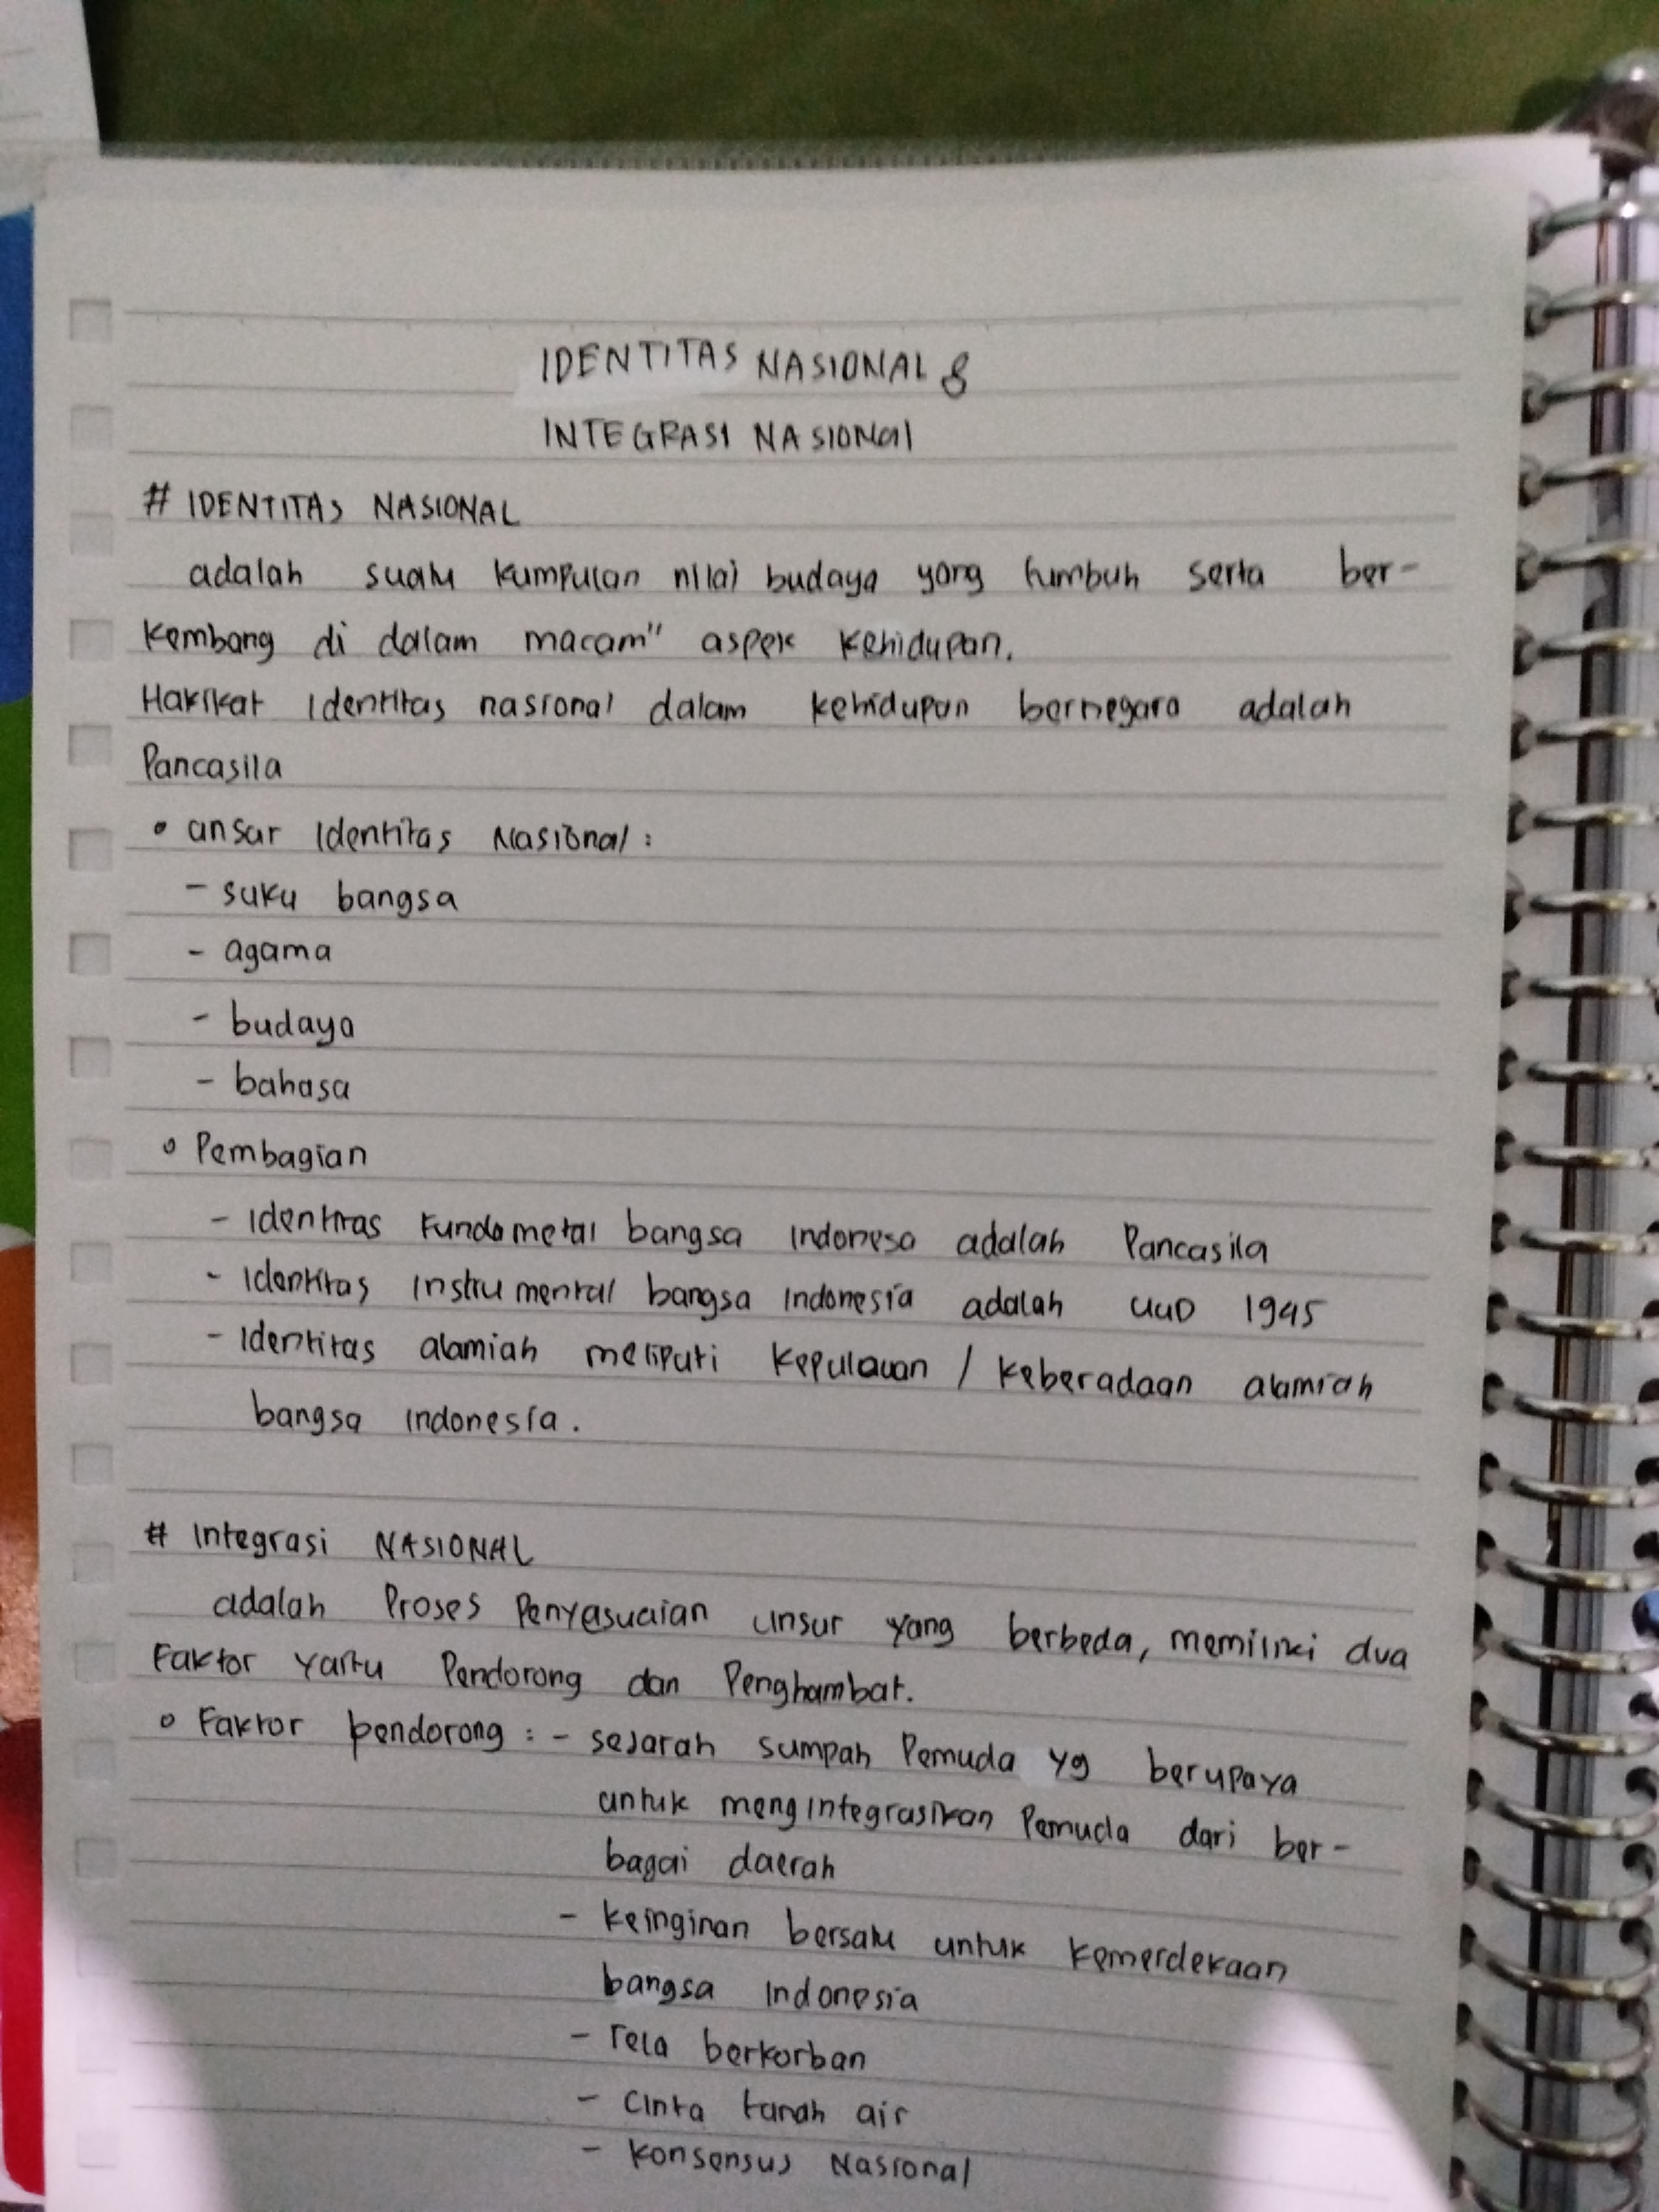 IDENTITAS NASIONAL &
INTEGRASI NASIONAl
# IDENTITAS NASIONAL
adalah suatu kumpulan nilai budaya yang tumbuh serta ber-
kembang di dalam macam" aspek kehidupan.
Hakikat Identitas nasional dalam kehidupan bernegara adalah
Pancasila
• unsur Identitas Nasional :
- suku bangsa
- agama
- budaya
- bahasa
• Pembagian
- Identitas Fundametal bangsa Indonesa adalah Pancasila
- Identitas Instrumental bangsa Indonesia adalah UUD 1945
- Identitas alamiah meliputi kepulauan / keberadaan alamiah
bangsa Indonesia.
# Integrasi NASIONAL
adalah Proses Penyesuaian unsur yang berbeda, memiliki dua
Faktor yaitu Pendorong dan Penghambat.
• Faktor pendorong : - sejarah sumpah Pemuda yg berupaya
untuk mengintegrasikan Pemuda dari ber-
bagai daerah
- keinginan bersatu untuk kemerdekaan
bangsa Indonesia
- rela berkorban
- Cinta tanah air
- Konsensus Nasional